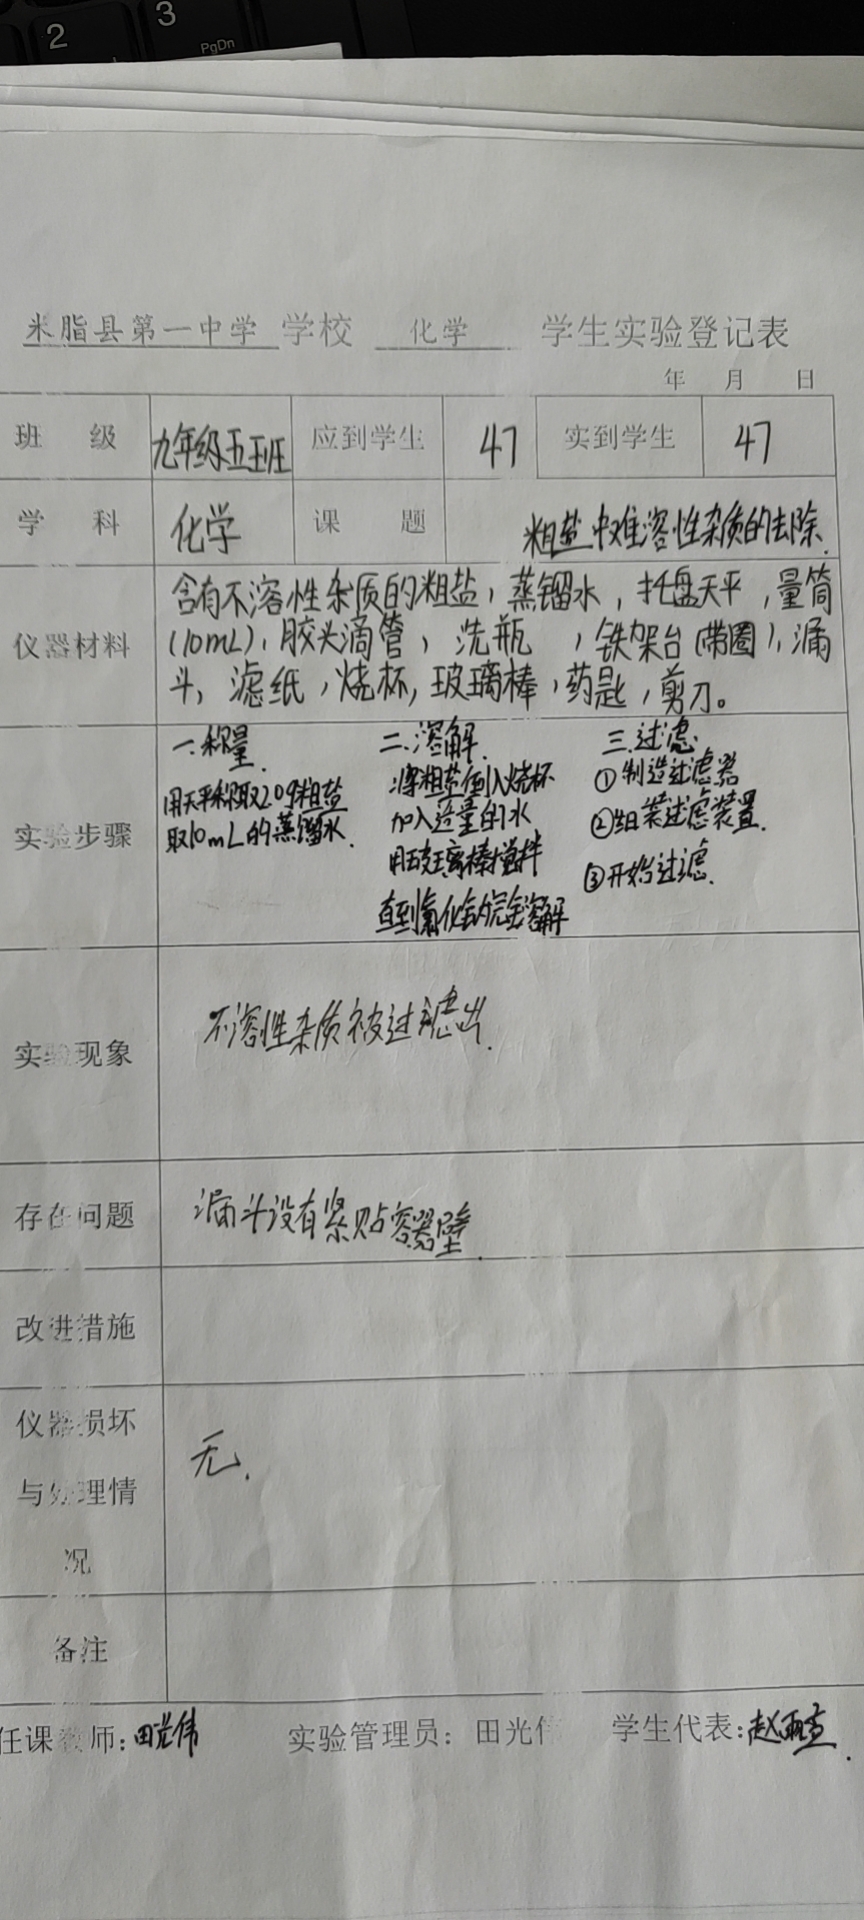 2
3
PgDn
米脂县第一中学 学校 化学 学生实验登记表
年 月 日
班 级 九年级五班 应到学生 47 实到学生 47
学 科 化学 课 题 粗盐中难溶性杂质的去除.
仪器材料
含有不溶性杂质的粗盐，蒸馏水，托盘天平，量筒
(10mL)，胶头滴管，洗瓶，铁架台(带圈)，漏
斗，滤纸，烧杯，玻璃棒，药匙，剪刀。
实验步骤
一.称量.
用天平称取2.0g粗盐
取10mL的蒸馏水.
二.溶解.
将粗盐倒入烧杯
加入适量的水
用玻璃棒搅拌
直到氯化钠完全溶解
三.过滤.
①制造过滤器
②组装过滤装置.
③开始过滤.
实验现象
不溶性杂质被过滤出.
存在问题
漏斗没有紧贴容器壁.
改进措施
仪器损坏
与处理情
况
无.
备注
任课教师：田光伟 实验管理员：田光伟 学生代表：赵